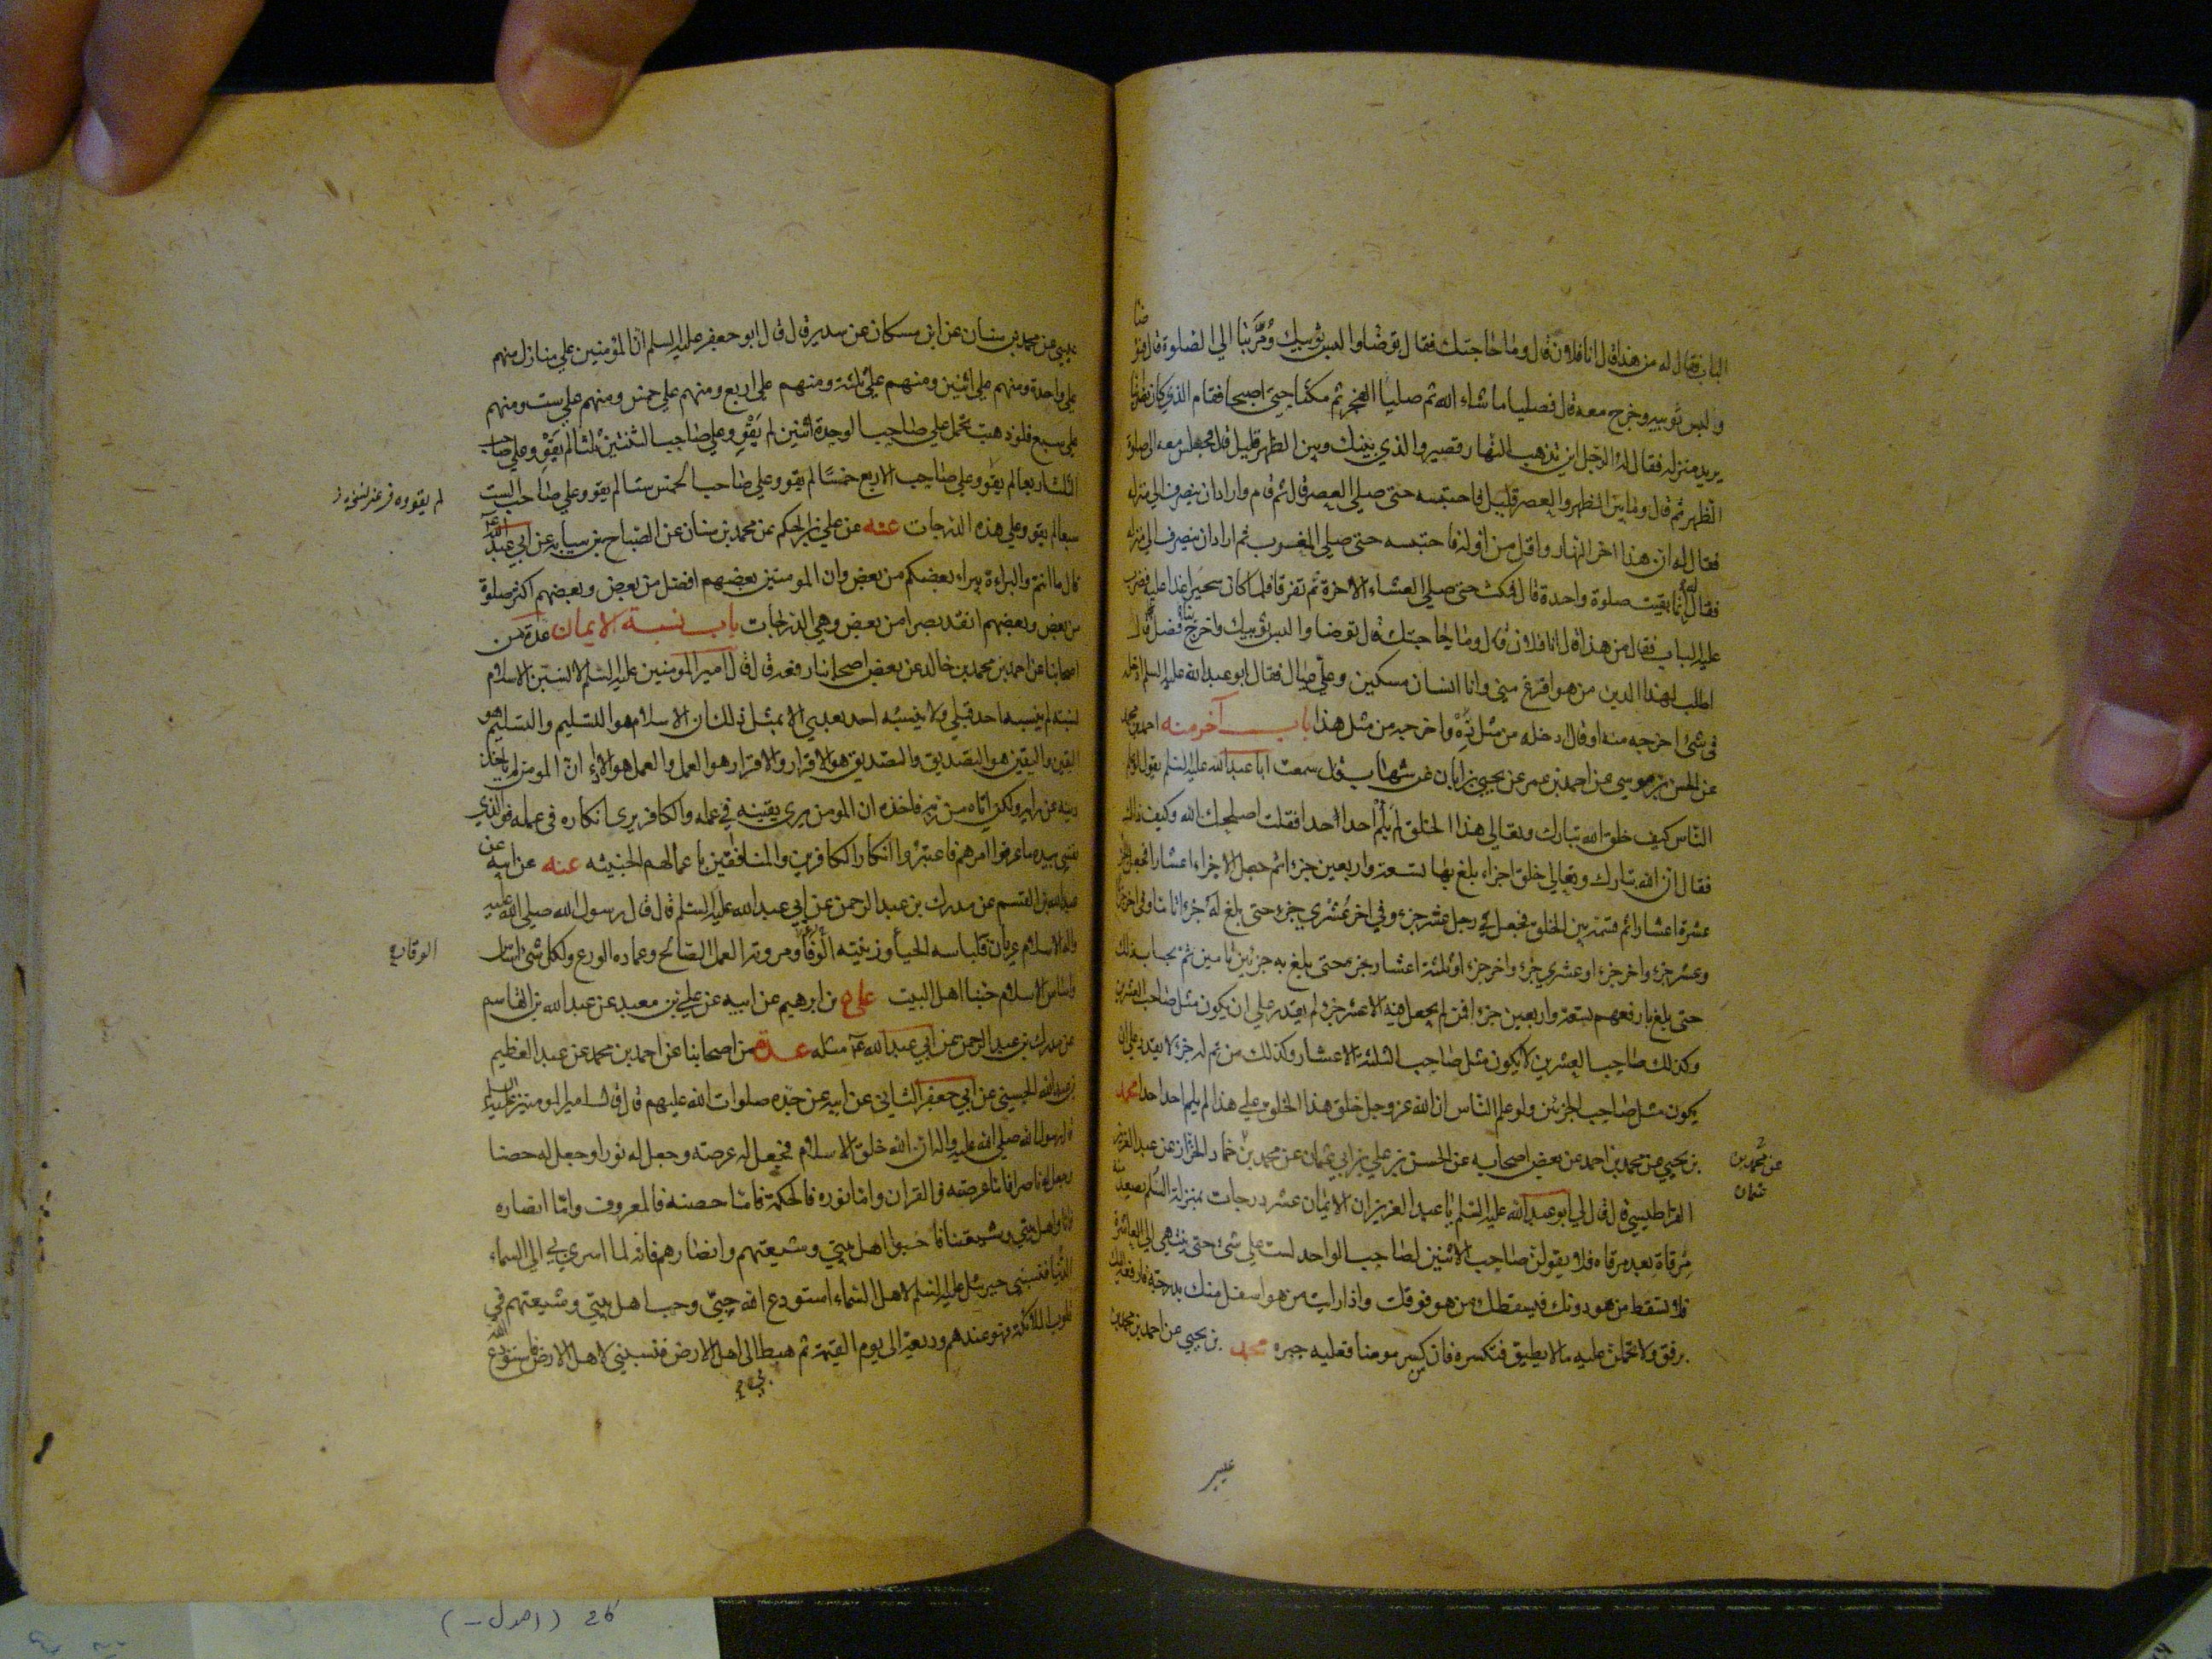 الباب فقال له من هذا قال انا فلان قال وما حاجتك فقال توضّأ والبس ثوبيك ومرّ بنا الى الصلوة قال فتوضا
والبس ثوبيه وخرج معه قال فصليا ما شاء الله ثم صليا الفجر ثم مكثا حتى اصبحا فقام الذي كان نصرانيا
يريد منزله فقال له الرجل اين تذهب النهار قصير والذي بينك وبين الظهر قليل قال فجلس معه الى صلوة
الظهر ثم قال وما بين الظهر والعصر قليل فاحتبسه حتى صلى العصر قال ثم قام واراد ان ينصرف الى منزله
فقال له ان هذا اخر النهار واقل من اوله فاحتبسه حتى صلى المغرب ثم اراد ان ينصرف الى منزله
فقال له انما بقيت صلوة واحدة قال فمكث حتى صلى العشاء الاخرة ثم تفرقا فلما كان سحيرا غدا عليه فضرب
عليه الباب فقال من هذا قال انا فلان قال وما حاجتك قال توضا والبس ثوبيك واخرج بنا فصل قال
اطلب لهذا الدين من هو افرغ مني وانا انسان مسكين وعلي عيال فقال ابو عبد الله عليه السلم ادخله
في شئ اخرجه منه او قال ادخله من مثل ذه واخرجه من مثل هذا باب آخر منه احمد بن محمد
عن الحسن بن موسى عن احمد بن عمر عن يحيى بن ابان عن شهاب قال سمعت ابا عبد الله عليه السلم يقول لو علم
الناس كيف خلق الله تبارك وتعالى هذا الخلق لم يلم احد احدا فقلت اصلحك الله وكيف ذلك
فقال ان الله تبارك وتعالى خلق اجزاء بلغ بها تسعة واربعين جزءا ثم جعل الاجزاء اعشارا فجعل الجزء
عشرة اعشار ثم قسمه بين الخلق فجعل في رجل عشر جزء وفي اخر عشري جزء حتى بلغ به جزءا تاما وفي اخر جزءا
وعشر جزء واخر جزءا وعشري جزء واخر جزءا وثلثة اعشار جزء حتى بلغ به جزئين تامين ثم بحساب ذلك
حتى بلغ بارفعهم تسعة واربعين جزءا فمن لم يجعل فيه الا عشر جزء لم يقدر على ان يكون مثل صاحب العشرين
وكذلك صاحب العشرين لا يكون مثل صاحب الثلثة الاعشار وكذلك من تم له جزء لا يقدر على ان
يكون مثل صاحب الجزئين ولو علم الناس ان الله عز وجل خلق هذا الخلق على هذا لم يلم احد احدا محمد
بن يحيى عن محمد بن احمد عن بعض اصحابه عن الحسن بن علي بن ابي عثمان عن محمد بن حماد الخزاز عن عبد العزيز
عن محمد بن عثمان
القراطيسي قال قال لي ابو عبد الله عليه السلم يا عبد العزيز ان الايمان عشر درجات بمنزلة السلم يصعد منه
مرقاة بعد مرقاه فلا يقولن صاحب الاثنين لصاحب الواحد لست على شئ حتى ينتهي الى العاشرة
فلا تسقط من هو دونك فيسقطك من هو فوقك واذا رايت من هو اسفل منك بدرجة فارفعه اليك
برفق ولا تحملن عليه ما لا يطيق فتكسره فان من كسر مومنا فعليه جبره محمد بن يحيى عن احمد بن محمد بن
عيسى
عيسى عن محمد بن سنان عن ابن مسكان عن سدير قال قال ابو جعفر عليه السلم ان المؤمنين على منازل منهم
على واحدة ومنهم على اثنين ومنهم على ثلثة ومنهم على اربع ومنهم على خمس ومنهم على ست ومنهم
على سبع فلو ذهبت تحمل على صاحب الوحدة اثنين لم يقو وعلى صاحب الثنتين ثلثا لم يقو وعلى صاحب
الثلث اربعا لم يقو وعلى صاحب الاربع خمسا لم يقو وعلى صاحب الخمس ستا لم يقو وعلى صاحب الست
سبعا لم يقو وعلى هذه الدرجات عنه عن علي بن الحكم عن محمد بن سنان عن الصباح بن سيابه عن ابي عبد الله
قال ما انتم والبراءة يبراء بعضكم من بعض وان المومنين بعضهم افضل من بعض وبعضهم اكثر صلوة
من بعض وبعضهم انفذ بصرا من بعض وهي الدرجات باب نسبة الايمان عدة من
اصحابنا عن احمد بن محمد بن خالد عن بعض اصحابنا رفعه قال قال امير المومنين عليه السلم لانسبن الاسلام
نسبة لم ينسبه احد قبلي ولا ينسبه احد بعدي الا بمثل ذلك ان الاسلام هو التسليم والتسليم هو
اليقين واليقين هو التصديق والتصديق هو الاقرار والاقرار هو العمل والعمل هو الاداء ان المومن لم ياخذ
دينه عن رايه ولكن اتاه من ربه فاخذه ان المومن يرى يقينه في عمله والكافر يرى انكاره في عمله فو الذي
نفسي بيده ما عرفوا امرهم فاعتبروا انكار الكافرين والمنافقين باعمالهم الخبيثه عنه عن ابيه عن
عبد الله بن القسم عن مدرك بن عبد الرحمن عن ابي عبد الله عليه السلم قال قال رسول الله صلى الله عليه
واله الاسلام عريان فلباسه الحياء وزينته الوفاء ومروته العمل الصالح وعماده الورع ولكل شئ اساس
الوقار
واساس الاسلام حبنا اهل البيت علي بن ابرهيم عن ابيه عن علي بن معبد عن عبد الله بن القاسم
عن مدرك بن عبد الرحمن عن ابي عبد الله ع مثله عدة من اصحابنا عن احمد بن محمد عن عبد العظيم
بن عبد الله الحسني عن ابي جعفر الثاني عن ابيه عن جده صلوات الله عليهم قال قال امير المومنين عليه السلم
قال رسول الله صلى الله عليه واله ان الله خلق الاسلام فجعل له عرصة وجعل له نورا وجعل له حصنا
وجعل له ناصرا فاما عرصته فالقران واما نوره فالحكمة فاما حصنه فالمعروف واما انصاره
فانا واهل بيتي وشيعتنا فاحبوا اهل بيتي وشيعتهم وانصارهم فانه لما اسري بي الى السماء
الدنيا فنسبني جبرئيل عليه السلم لاهل السماء استودع الله حبي وحب اهل بيتي وشيعتهم في
قلوب الملائكة فهو عندهم وديعة الى يوم القيمة ثم هبط الى اهل الارض فنسبني لاهل الارض فاستودع الله
كافي (اصول -)